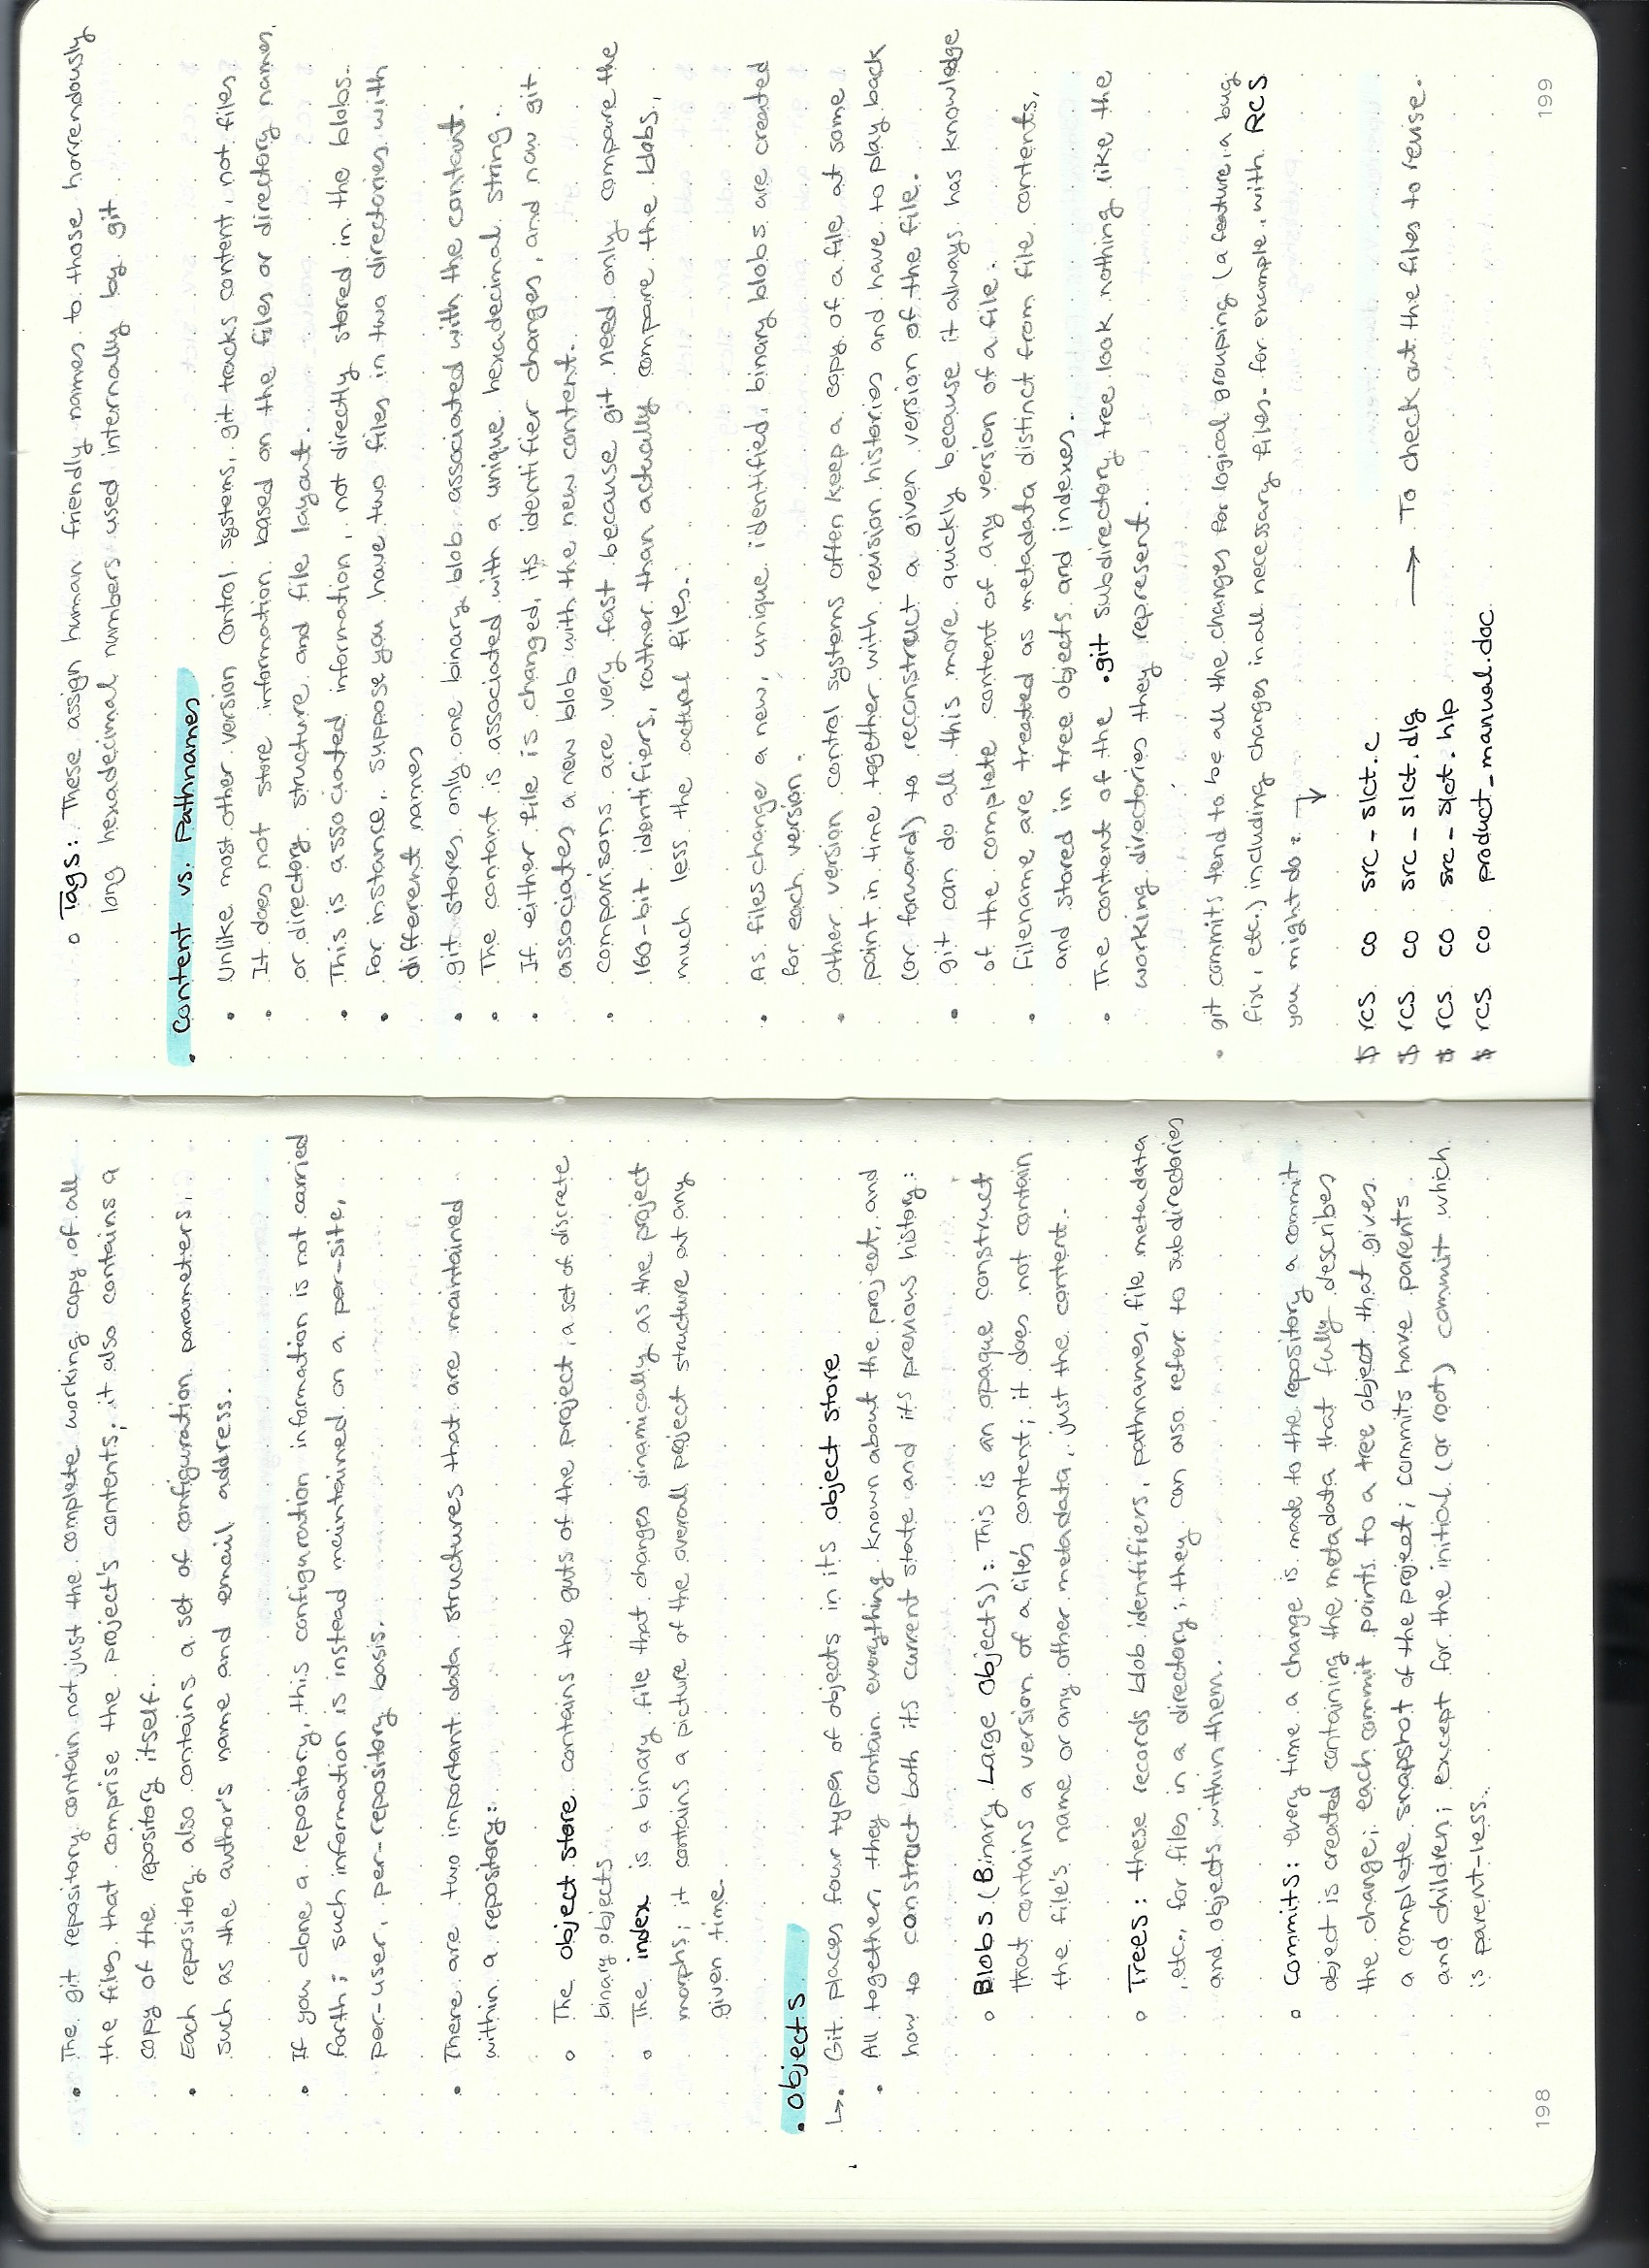 • The git repository contain not just the complete working copy of all
the files that comprise the project's contents; it also contains a
copy of the repository itself.
• Each repository also contains a set of configuration parameters,
such as the author's name and email address.
• If you clone a repository, this configuration information is not carried
forth; such information is instead maintained on a per-site,
per-user, per-repository basis.
• There are two important data structures that are maintained
within a repository:
o The object store contains the guts of the project, a set of discrete
binary objects
o The index is a binary file that changes dinamically as the project
morphs; it contains a picture of the overall project structure at any
given time.
• Objects
↳• Git places four types of objects in its object store
• All together, they contain everything known about the project, and
how to construct both its current state and its previous history:
o Blobs (Binary Large Objects): This is an opaque construct
that contains a version of a file's content; it does not contain
the file's name or any other metadata, just the content.
o Trees: these records blob identifiers, pathnames, file metadata
,etc., for files in a directory; they can also refer to subdirectories
and objects within them.
o Commits: every time a change is made to the repository a commit
object is created containing the metadata that fully describes
the change; each commit points to a tree object that gives
a complete snapshot of the project; commits have parents
and children; except for the initial (or root) commit which
is parent-less.
198
o Tags: These assign human friendly names to those horrendously
long hexadecimal numbers used internally by git
• Content vs. Pathnames
• Unlike most other version control systems, git tracks content, not files.
• It does not store information based on the files or directory names,
or directory structure and file layout.
• This is associated information, not directly stored in the blobs.
• For instance, suppose you have two files in two directories with
different names
• git stores only one binary blob associated with the content.
• The contant is associated with a unique hexadecimal string.
• If either file is changed, its identifier changes, and now git
associates a new blob with the new content.
• comparisons are very fast because git need only compare the
160-bit identifiers, rather than actually compare the blobs,
much less the actual files.
• As files change a new, unique identified, binary blobs are created
for each version.
• Other version control systems often keep a copy of a file at some
point in time together with revision histories and have to play back
(or forward) to reconstruct a given version of the file.
• git can do all this more quickly because it always has knowledge
of the complete content of any version of a file.
• Filename are treated as metadata distinct from file contents,
and stored in tree objects and indexes.
• The content of the .git subdirectory tree look nothing like the
working directories they represent.
• git commits tend to be all the changes for logical grouping (a feature, a bug
fix, etc.) including changes in all necessary files. for example, with RCS
you might do: ↓
$ rcs co src_slct.c
$ rcs co src_slct.dlg → To check out the files to revise.
$ rcs co src_slct.hlp
$ rcs co product_manual.doc
199